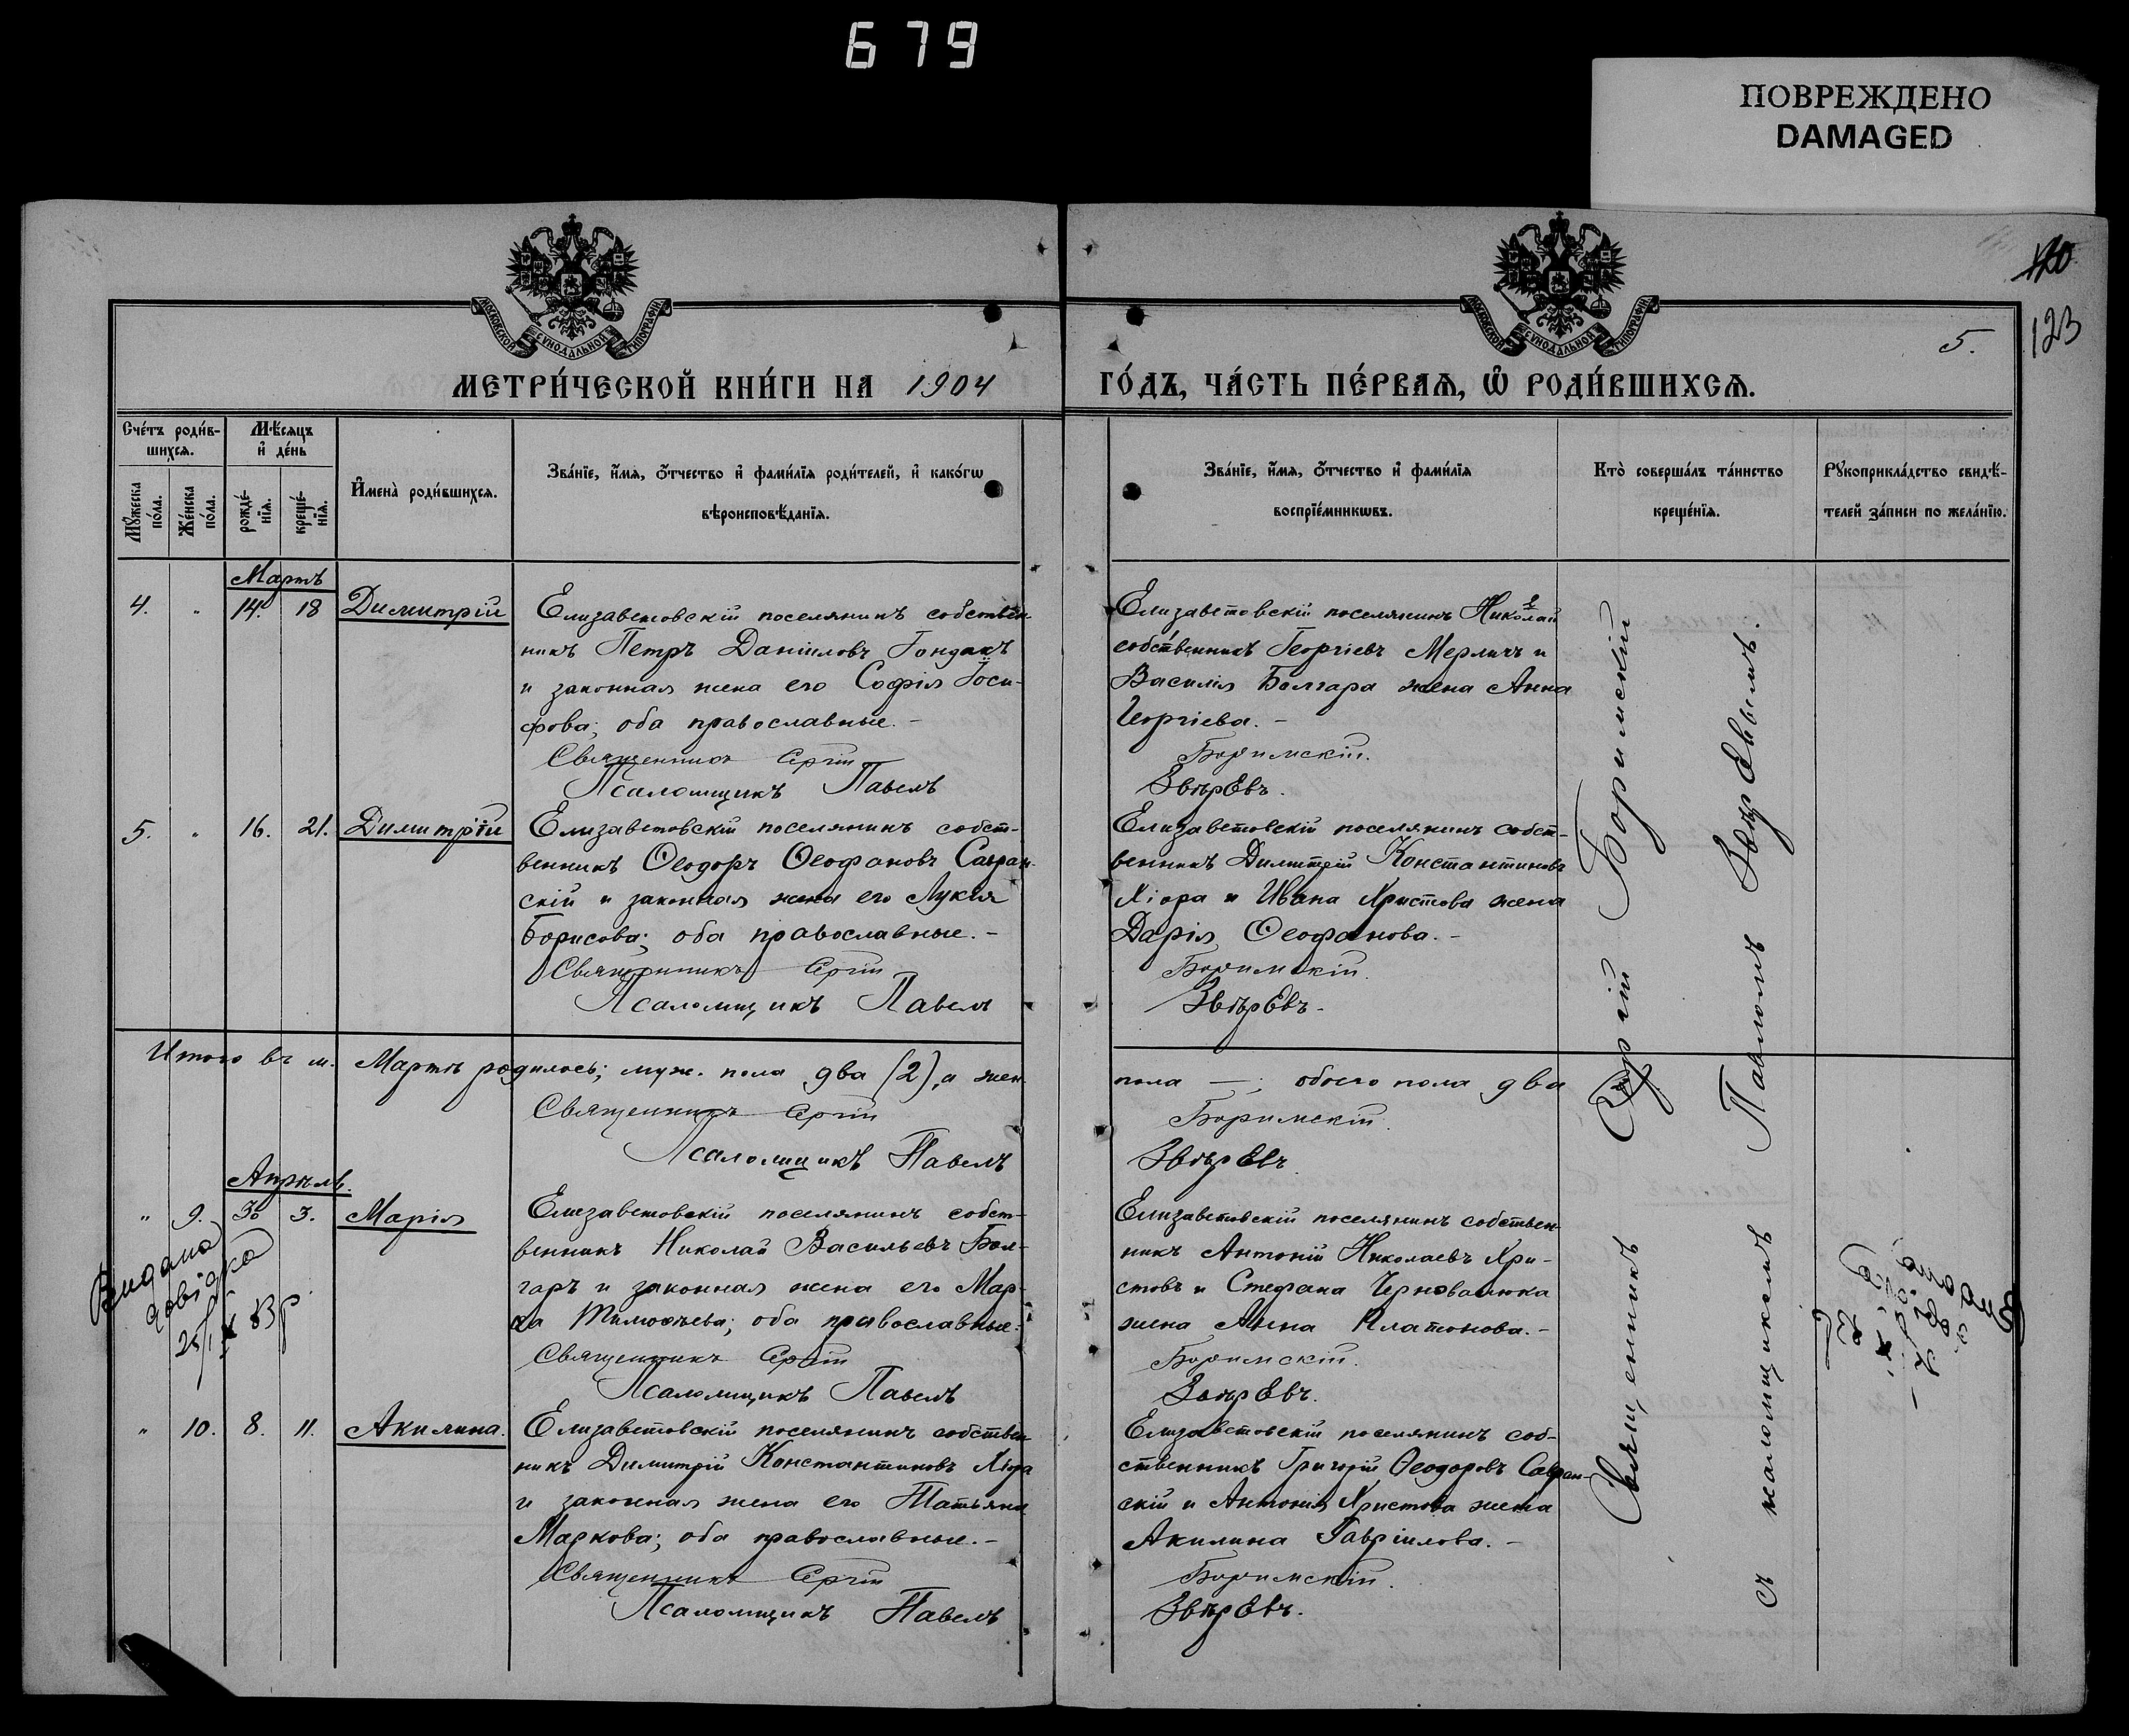 679
ПОВРЕЖДЕНО
DAMAGED
120
123
5.
МОСКОВСКОЙ СѴНОДАЛЬНОЙ ТИПОГРАФІИ
МОСКОВСКОЙ СѴНОДАЛЬНОЙ ТИПОГРАФІИ
МЕТРИ́ЧЕСКОЙ КНИ́ГИ НА 1904
ГО́ДЪ, ЧА́СТЬ ПЕ́РВАѦ, Ѡ҆ РОДИ́ВШИХСѦ.
Сче́тъ роди́в-
шихсѧ.
Мꙋ́жеска по́ла.
Же́нска по́ла.
Мѣ́сѧцъ и҆ де́нь
рожде́-нїѧ.
креще́-нїѧ.
И҆мена̀ роди́вшихсѧ.
Зва́нїе, и҆́мѧ, ѻ҆́тчество и҆ фами́лїѧ роди́телей, и҆ како́гѡ
вѣроисповѣ́данїѧ.
Зва́нїе, и҆́мѧ, ѻ҆́тчество и҆ фами́лїѧ
воспрїе́мникѡвъ.
Кто̀ соверша́лъ та́инство
креще́нїѧ.
Рꙋкоприкла́дство свидѣ́-
телей за́писи по жела́нїю.
Мартъ
4. " 14. 18 Димитрій
Елизаветовскій поселянинъ собствен-
никъ Петръ Даніиловъ Гондакъ
и законная жена его Софія Іоси-
фова; оба православные.-
Священникъ Сергій
Псаломщикъ Павелъ
Елизаветовскій поселянинъ Николай
собственникъ Георгіевъ Мерличъ и
Василія Болгара жена Анна
Георгіева.-
Боримскій.
Звѣревъ.
5. " 16. 21. Димитрій
Елизаветовскій поселянинъ собст-
венникъ Ѳеодоръ Ѳеофановъ Савран-
скій и законная жена его Лукія
Борисова; оба православные.-
Священникъ Сергій
Псаломщикъ Павелъ
Елизаветовскій поселянинъ собст-
венникъ Димитрій Константиновъ
Хіора и Ивана Христова жена
Дарія Ѳеофанова.-
Боримскій.
Звѣревъ.
Итого въ м. Мартѣ родилось; муж. пола два (2), а жен.
пола —; обоего пола два
Священникъ Сергій
Псаломщикъ Павелъ
Боримскій.
Звѣревъ
Апрѣль.
" 9. 30 3. Марія
Елизаветовскій поселянинъ собст-
венникъ Николай Васильевъ Бол-
гаръ и законная жена его Мар-
ѳа Тимоѳеева; оба православные.
Священникъ Сергій
Псаломщикъ Павелъ
Елизаветовскій поселянинъ собствен-
никъ Антоній Николаевъ Хри-
стовъ и Стефана Черноволюка
жена Анна Платонова.-
Боримскій.
Звѣревъ.
Видана
довідка
" 10. 8. 11. Акилина.
Елизаветовскій поселянинъ собствен-
никъ Димитрій Константиновъ Хіора
и законная жена его Татьяна
Маркова; оба православные.-
Священникъ Сергій
Псаломщикъ Павелъ
Елизаветовскій поселянинъ соб-
ственникъ Григорій Ѳеодоровъ Савран-
скій и Антонія Христова жена
Акилина Гавріилова.-
Боримскій.
Звѣревъ.
Священникъ Сергій Боримскій
съ псаломщикомъ Павломъ Звѣревымъ.